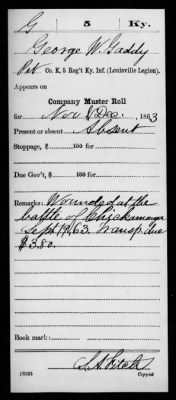 G 5 Ky.
George W. Gaddy
Pvt, Co. K, 5 Reg't Ky. Inf. (Louisville Legion).
Appears on
Company Muster Roll
for Nov & Dec, 1863
Present or absent Absent
Stoppage, $ 100 for
Due Gov't, $ 100 for
Remarks: Wounded at the
battle of Chickamauga
Sept 19, 63. Transp. due
$3.80.
Book mark:
Copyist